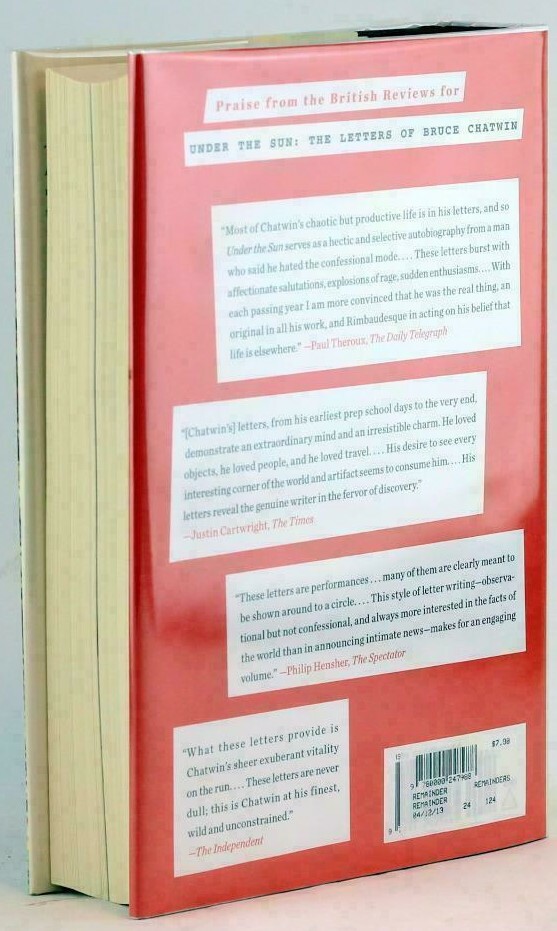 Praise from the British Reviews for
UNDER THE SUN: THE LETTERS OF BRUCE CHATWIN
"Most of Chatwin's chaotic but productive life is in his letters, and so
Under the Sun serves as a hectic and selective autobiography from a man
who said he hated the confessional mode.... These letters burst with
affectionate salutations, explosions of rage, sudden enthusiasms.... With
each passing year I am more convinced that he was the real thing, an
original in all his work, and Rimbaudesque in acting on his belief that
life is elsewhere." —Paul Theroux, The Daily Telegraph
"[Chatwin's] letters, from his earliest prep school days to the very end,
demonstrate an extraordinary mind and an irresistible charm. He loved
objects, he loved people, and he loved travel.... His desire to see every
interesting corner of the world and artifact seems to consume him.... His
letters reveal the genuine writer in the fervor of discovery."
—Justin Cartwright, The Times
"These letters are performances ... many of them are clearly meant to
be shown around to a circle.... This style of letter writing—observa-
tional but not confessional, and always more interested in the facts of
the world than in announcing intimate news—makes for an engaging
volume." —Philip Hensher, The Spectator
"What these letters provide is
Chatwin's sheer exuberant vitality
on the run.... These letters are never
dull; this is Chatwin at his finest,
wild and unconstrained."
—The Independent
$7.98
9 780000 247988
REMAINDER REMAINDERS
REMAINDER
04/12/13 24 124